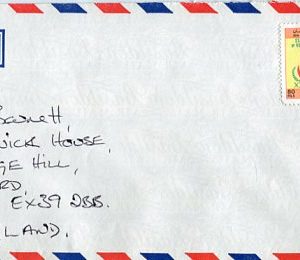 Barnett,
WICK HOUSE,
GE HILL,
RD.
EX39 2BB.
LAND.
80